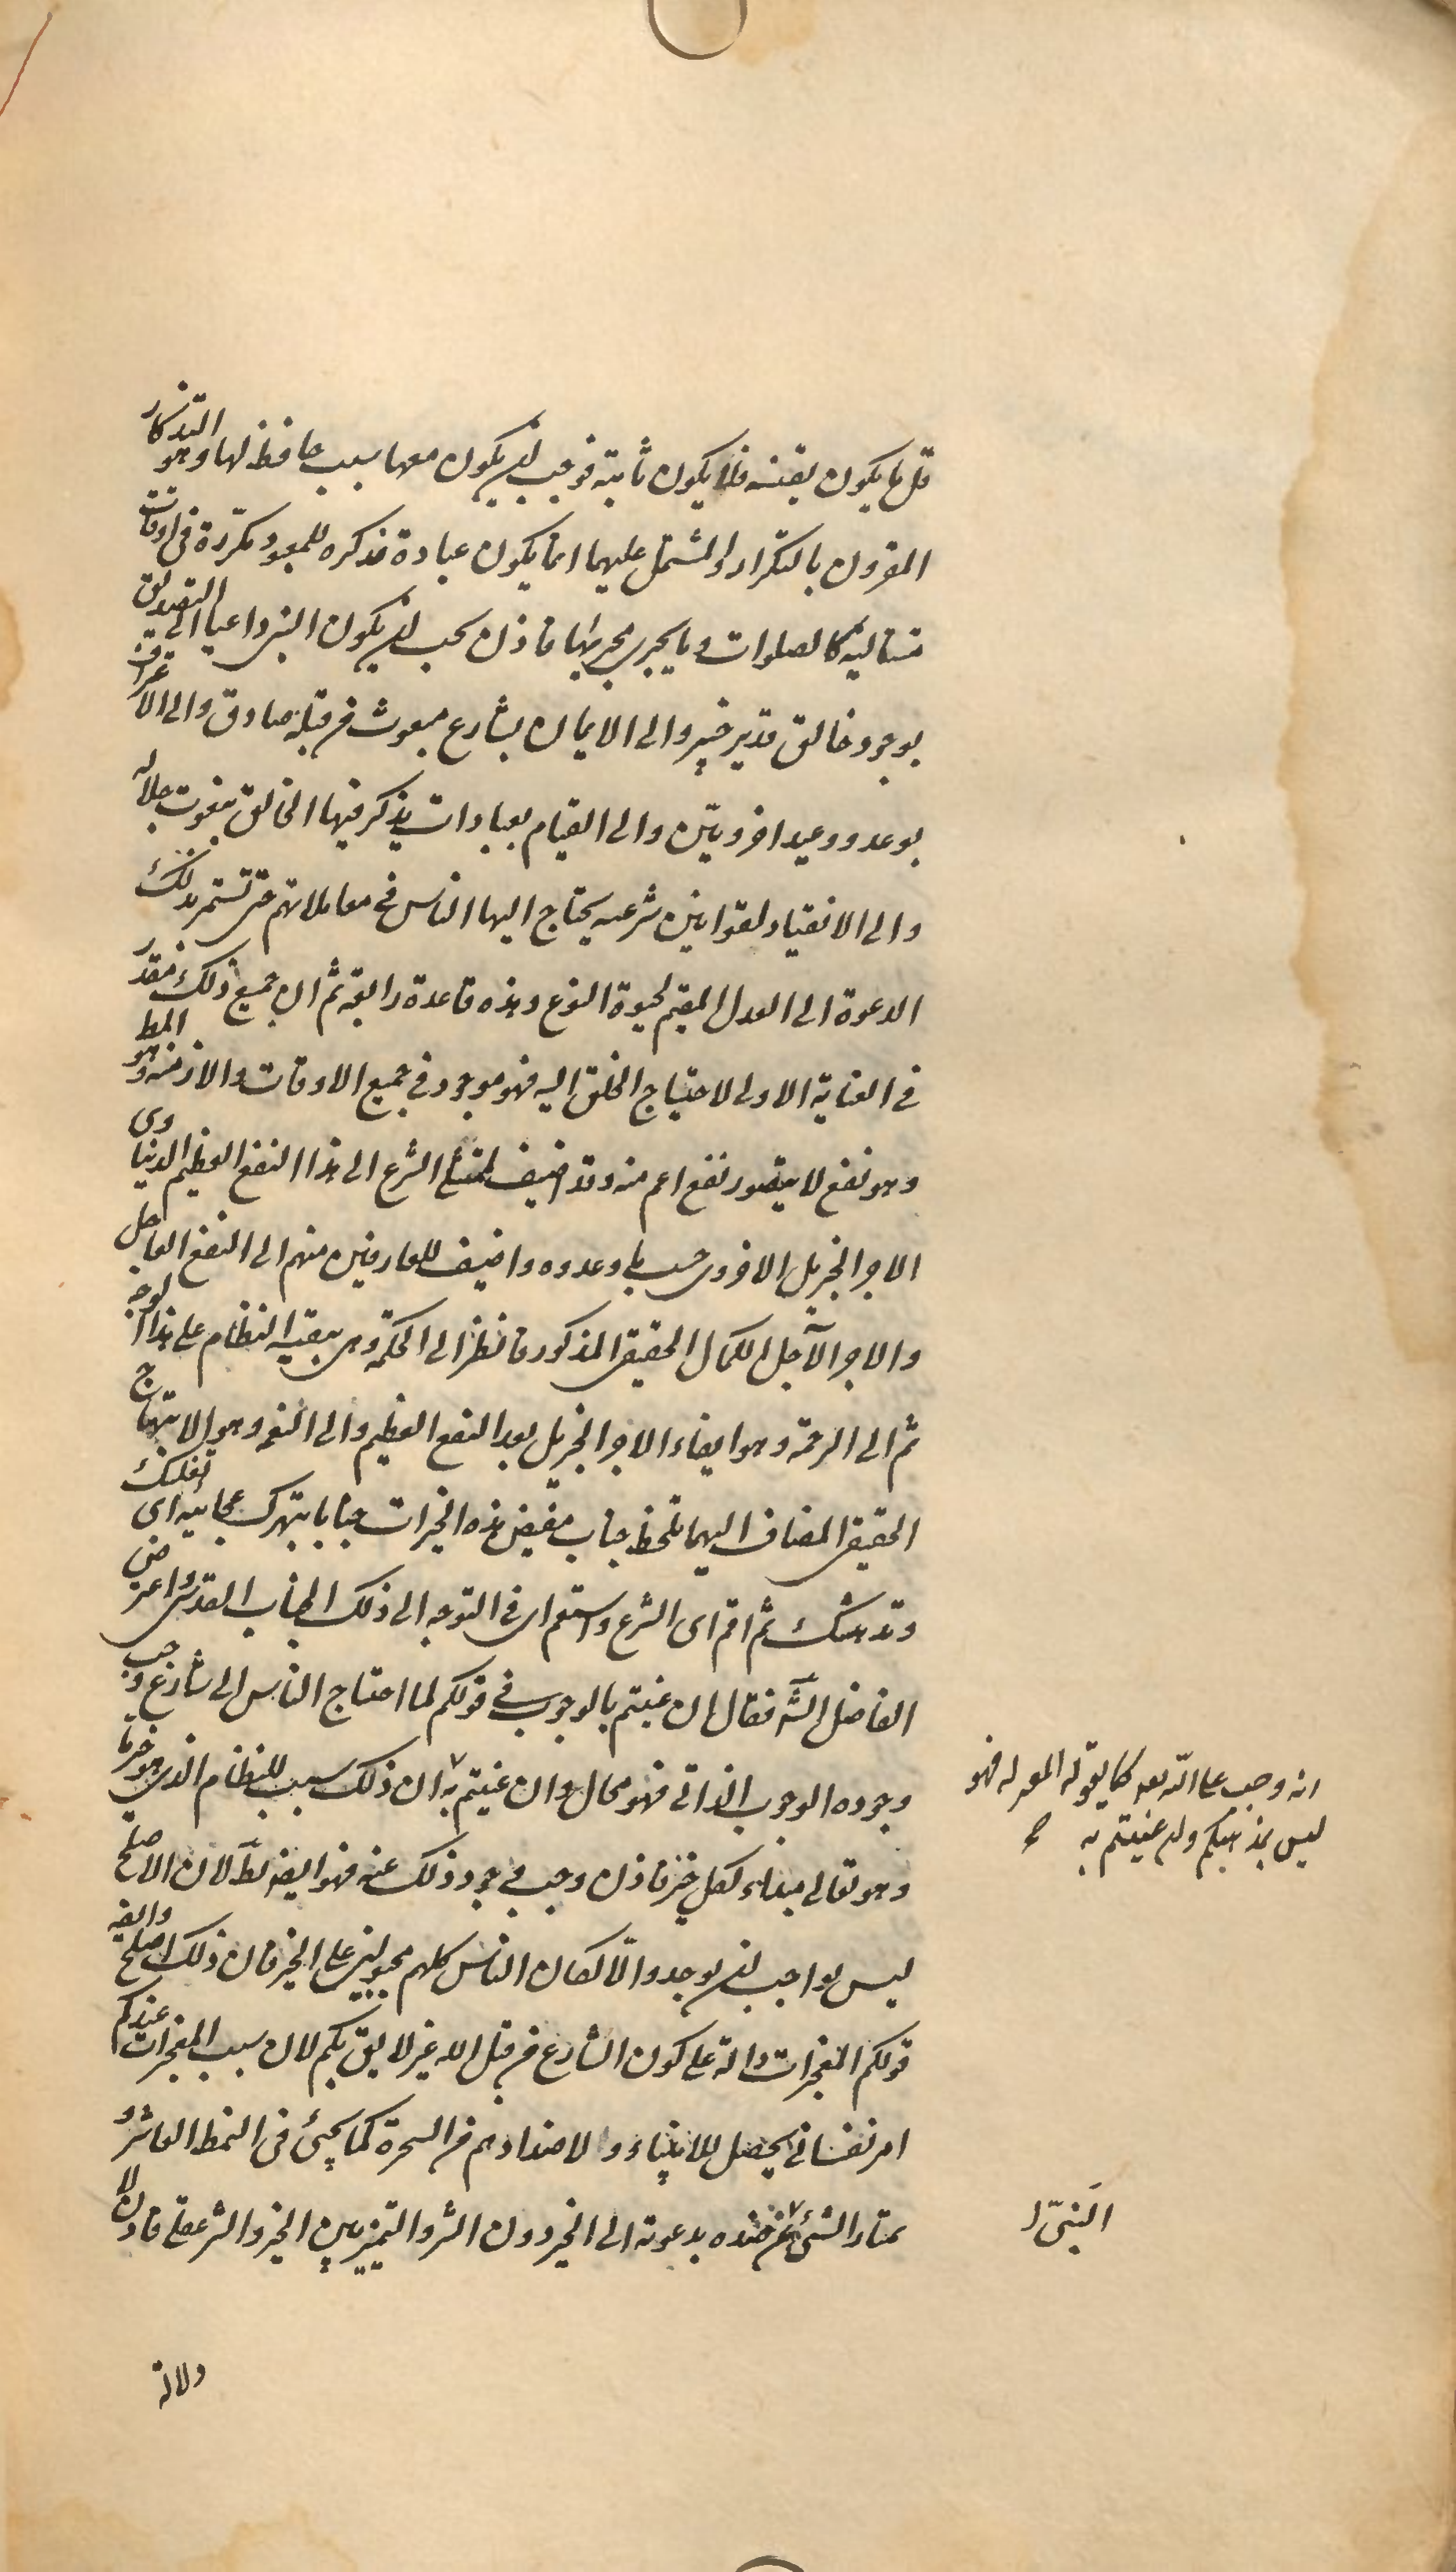 قل ما يكون يقينه فلا يكون ثابتة فوجب ان يكون معها سبب حافظ لها وهو التذكار
المقرون بالتكرار والمشتمل عليهما انما يكون عبادة مذكره للمعبود مكررة فى اوقات
متتاليه كالصلوات وما يجرى مجريها فاذن يجب ان يكون النبى داعيا الى التصديق
بوجود خالق قدير خبير والى الايمان بشارع مبعوث من قبله صادق والى الاعتراف
بوعد ووعيد اخرويين والى القيام بعبادات يذكر فيها الخالق بنعوت جلاله
والى الانقياد لقوانين شرعيه يحتاج اليها الناس فى معاملاتهم حتى تستمر بذلك
الدعوة الى العدل المقيم لحيوة النوع وهذه قاعدة رابعة ثم ان جميع ذلك مقدر
فى العناية الاولى لاحتياج الخلق اليه فهو موجود فى جميع الاوقات والازمنه وهو المط
وهو نفع لا يتصور نفع اعم منه وقد اضيف لممتثلى الشرع الى هذا النفع العظيم الدنياوى
الاجر الجزيل الاخروى حسب ما وعدوه واضيف للعارفين منهم الى النفع العاجل
والاجر الآجل الكمال الحقيقى المذكور فانظر الى الحكمة وهى تبقيه النظام على هذا الوجه
ثم الى الرحمة وهو ايفاء الاجر الجزيل بعد النفع العظيم والى النعمة وهو الابتهاج
الحقيقى المضاف اليهما تلحظ جناب مفيض هذه الخيرات جنابا تبهرك عجايبه اى تغلبك
وتدهشك ثم اقم اى الشرع واستقم اى فى التوجه الى ذلك الجناب القدس واعترض
الفاضل الشه فقال ان عنيتم بالوجوب فى قولكم لما احتاج الناس الى شارع وجب
وجوده الوجوب الذاتى فهو محال وان عنيتم به ان ذلك سبب للنظام الذى هو خير ما
وهو تعالى مبداء لكل خير فاذن وجب وجود ذلك عنه فهو ايضه بط لان الاصلح
ليس بواجب ان يوجد والا لكان الناس كلهم مجبولين على الخير فان ذلك اصلح وايضه
قولكم المعجزات دالة على كون الشارع من قبل الله غير لايق بكم لان سبب المعجزات عندكم
امر نفسانى يحصل للانبياء ولاضدادهم من السحرة كما يجئ فى النمط العاشر و
يمتاز النبى عن ضده بدعوته الى الخير دون الشر والتميز بين الخير والشر عقلى فاذن لا
دلالة
انه وجب على الله تعه كما يقوله المعتزله فهو
ليس بمذهبكم وان عنيتم به صح
النبى